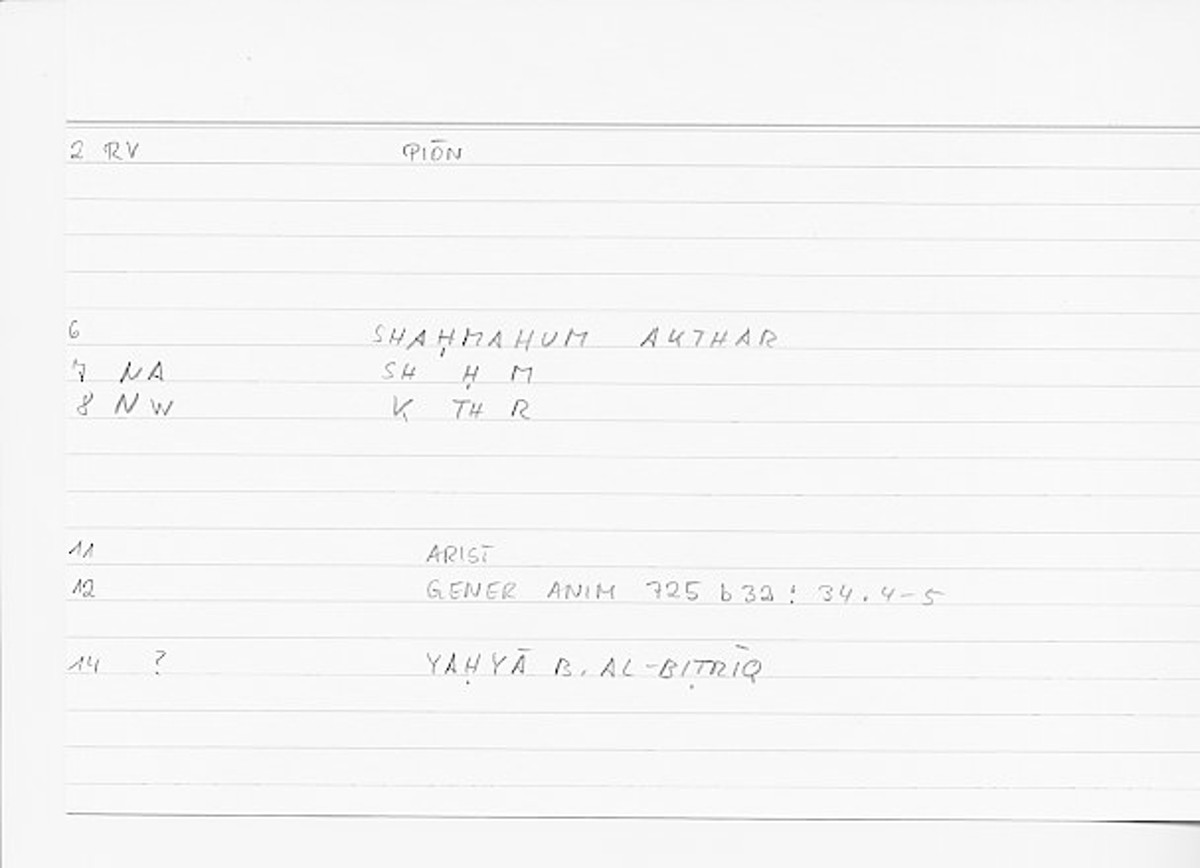 2 RV PIŌN
6 SHAḤMAHUM AKTHAR
7 NA SH Ḥ M
8 NW K TH R
11 ARIST
12 GENER ANIM 725 b 32 : 34.4-5
14 ? YAḤYĀ B. AL-BIṬRĪQ